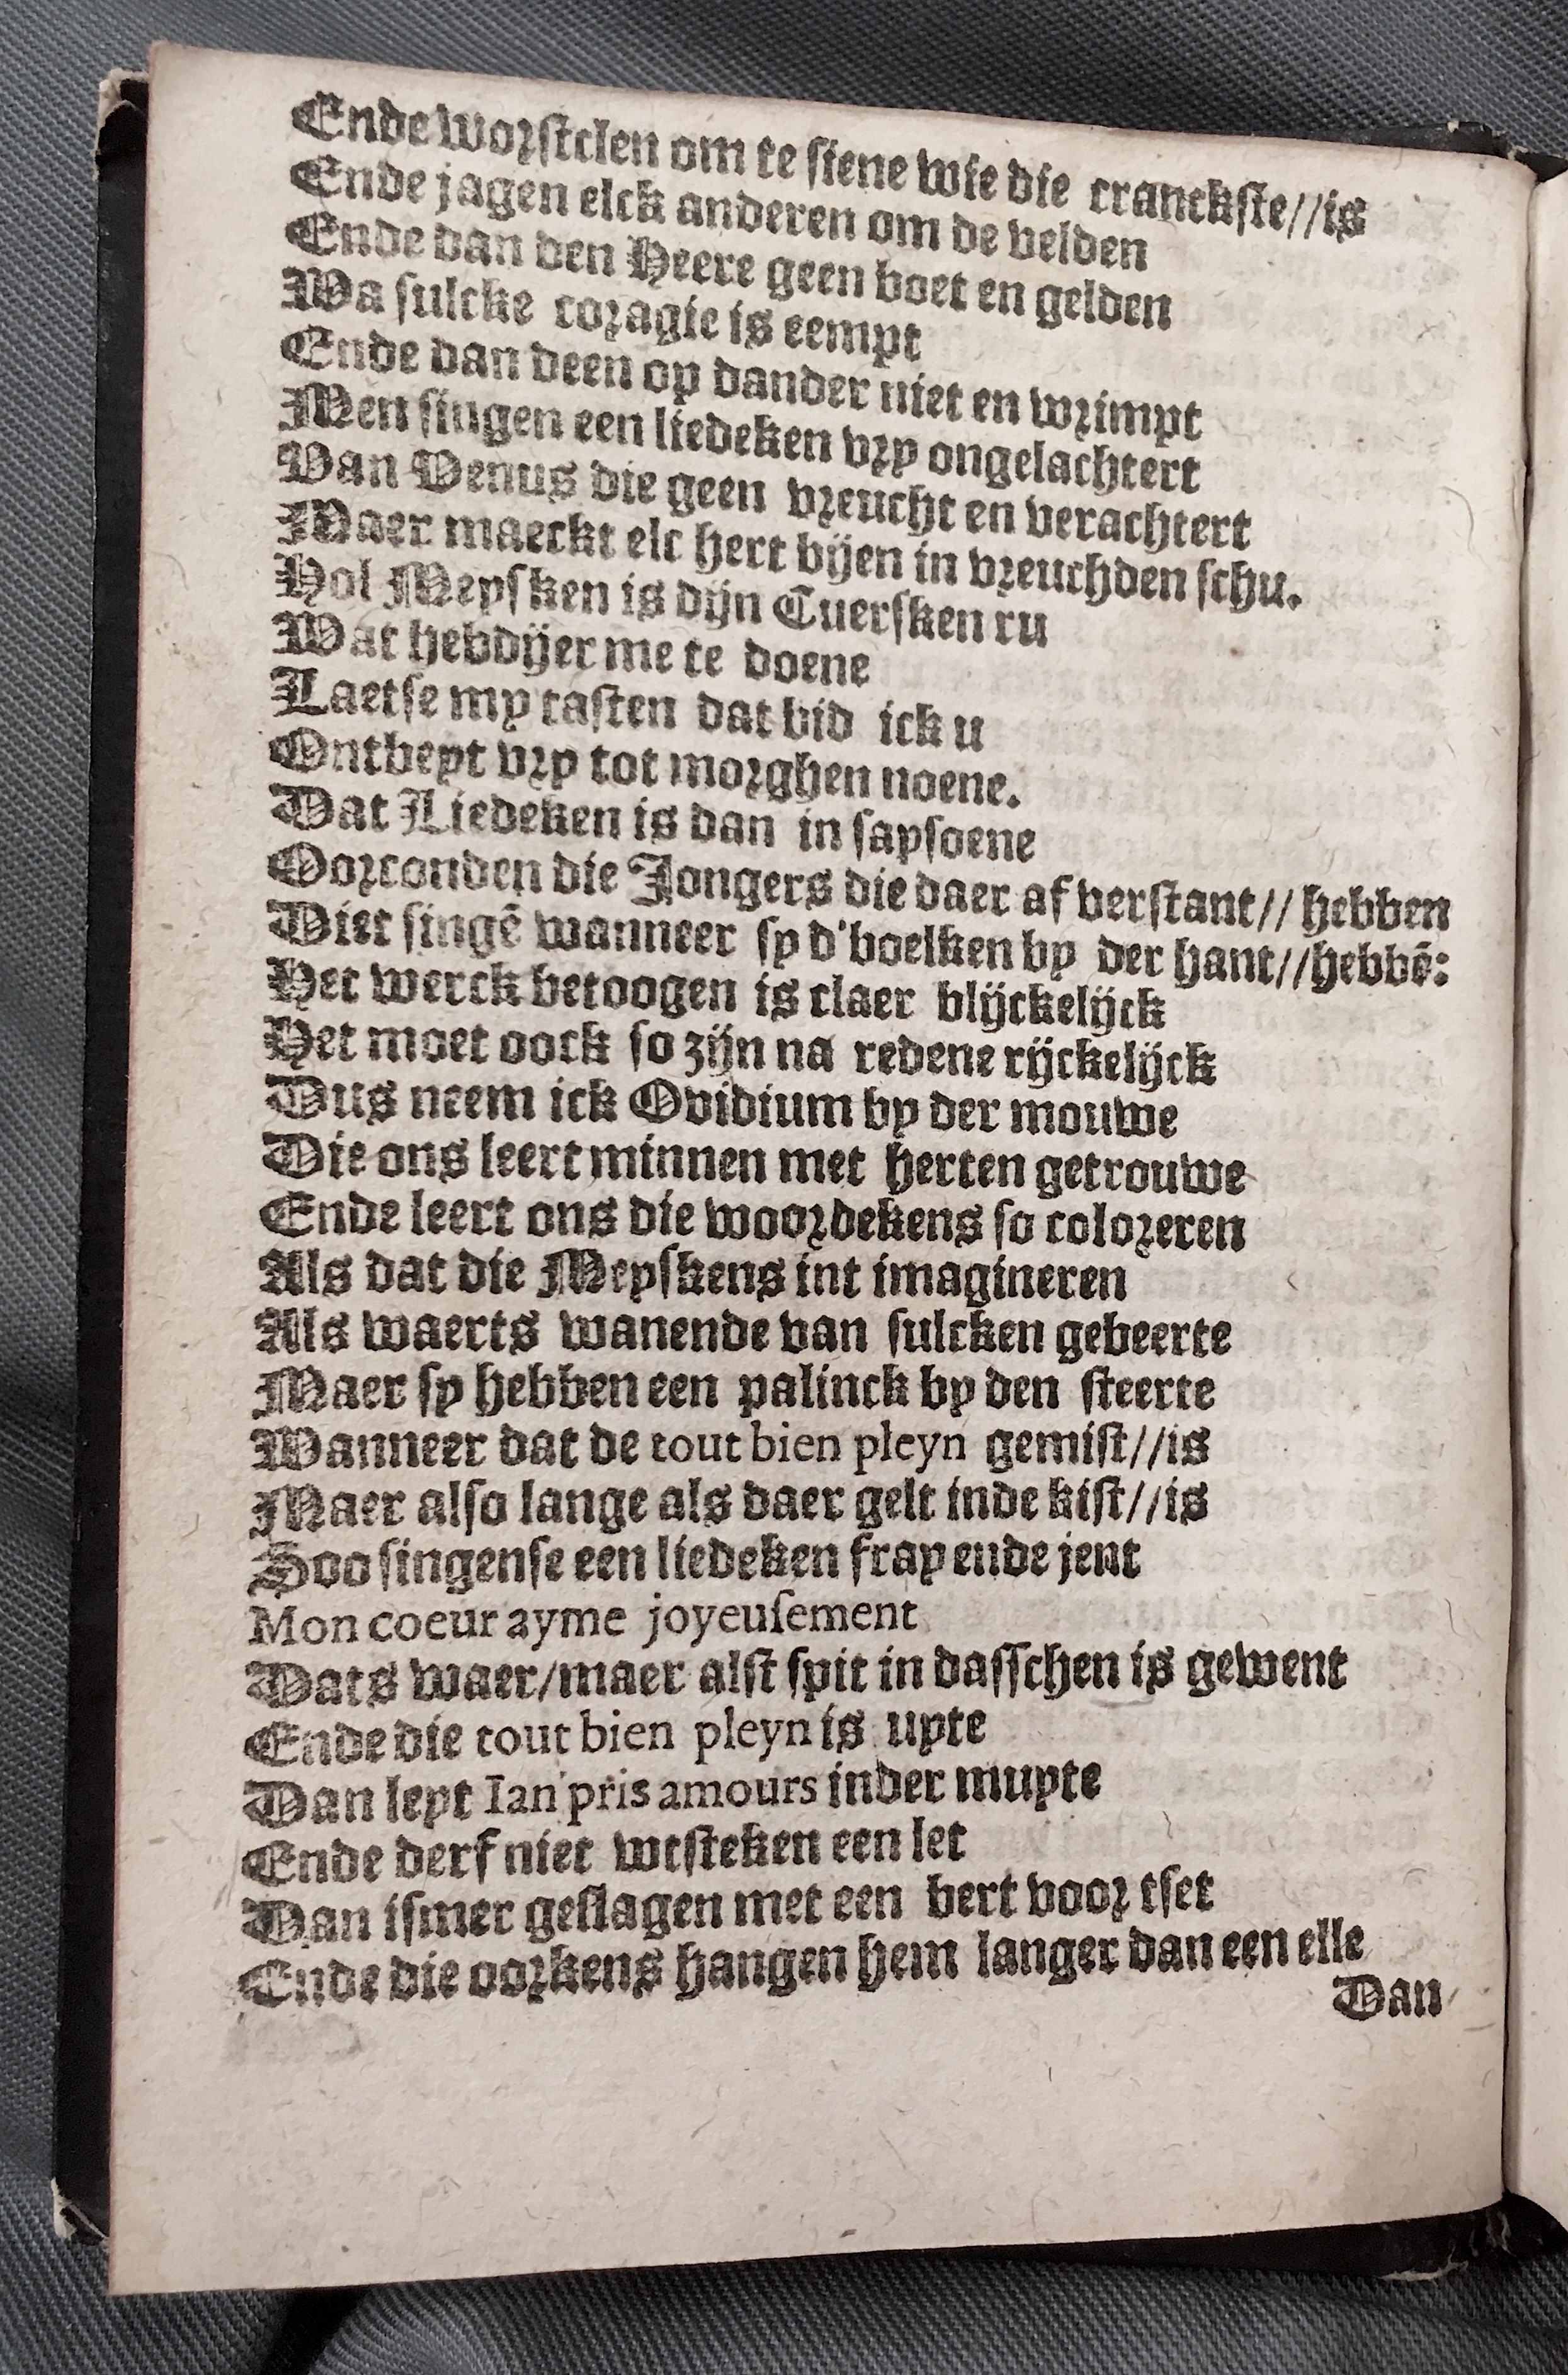 Ende worstelen om te siene wie die cranckste//is
Ende jagen elck anderen om de velden
Ende dan den Heere geen boet en gelden
Wa sulcke coragie is eempt
Ende dan deen op dander niet en wrimpt
Men singen een liedeken vry ongelachtert
Van Venus die geen vreucht en verachtert
Maer maeckt elc hert vijen in vreuchden schu.
Hol Meysken is dijn Cuersken ru
Wat hebdijer me te doene
Laetse my tasten dat bid ick u
Ontbeyt vry tot morghen noene.
Dat Liedeken is dan in saysoene
Oorconden die Jongers die daer af verstant// hebben
Diet singē wanneer sy d'boelken by der hant//hebbē:
Het werck betoogen is claer blijckelijck
Het moet oock so zijn na redene rijckelijck
Dus neem ick Ovidium by der mouwe
Die ons leert minnen met herten getrouwe
Ende leert ons die woordekens so coloreren
Als dat die Meyskens int imagineren
Als waerts wanende van sulcken gebeerte
Maer sy hebben een palinck by den steerte
Wanneer dat de tout bien pleyn gemist//is
Maer also lange als daer gelt inde kist//is
Soo singense een liedeken fray ende jent
Mon coeur ayme joyeusement
Dats waer/maer alst spit in dasschen is gewent
Ende die tout bien pleyn is uyte
Dan leyt Ian pris amours inder muyte
Ende derf niet wtsteken een let
Dan ismer geslagen met een bert voor tset
Ende die oorkens hangen hem langer dan een elle
Dan